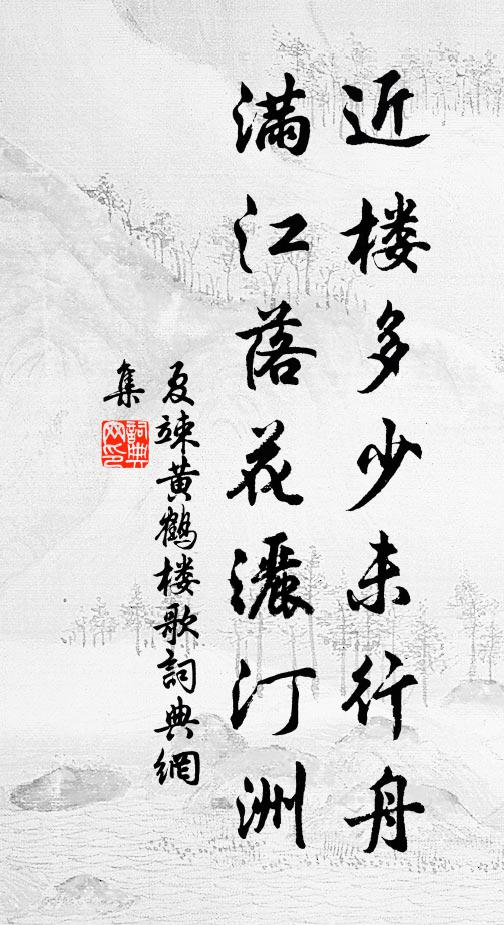 近楼多少未行舟
满江落花灑汀洲
夏竦黄鹤楼歌詞典網
集
詞典
网印